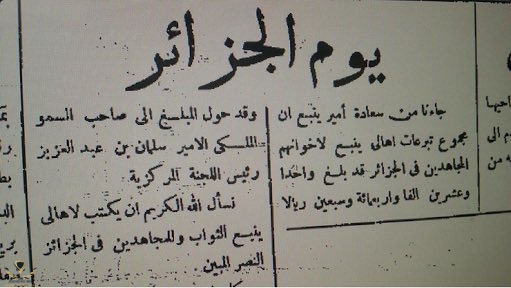 يوم الجزائر
جاءنا من سعادة أمير ينبع ان
مجموع تبرعات اهالي ينبع لاخوانهم
المجاهدين في الجزائر قد بلغ واحدا
وعشرين الفا واربعمائة وسبعين ريالا
وقد حول المبلغ الى صاحب السمو
الملكي الامير سلمان بن عبد العزيز
رئيس اللجنة المركزية
نسأل الله الكريم ان يكتب لاهالي
ينبع الثواب وللمجاهدين في الجزائر
النصر المبين